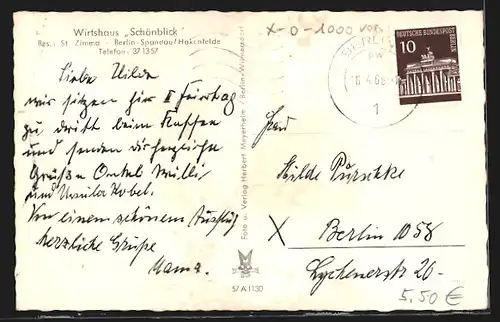 Wirtshaus „Schönblick"
Bes.: St. Zimma Berlin-Spandau/Hakenfelde
Telefon: 371357
Liebe Hilde
wir sitzen hier II Feiertag
zu dritt beim Kaffee
und senden dir herzliche
Grüße Onkel Willi
und Ursula Kobel.
Von einem schönem Ausflug
herzliche Grüße
Mama.
Foto u. Verlag Herbert Meyerheim / Berlin-Wilmersdorf
57 A 1130
X-0-1000 von
BERLIN
16.4.68
1
DEUTSCHE BUNDESPOST
BERLIN
10
Hilde
X Berlin 1058
Lychenerstr 20-
5,50 €